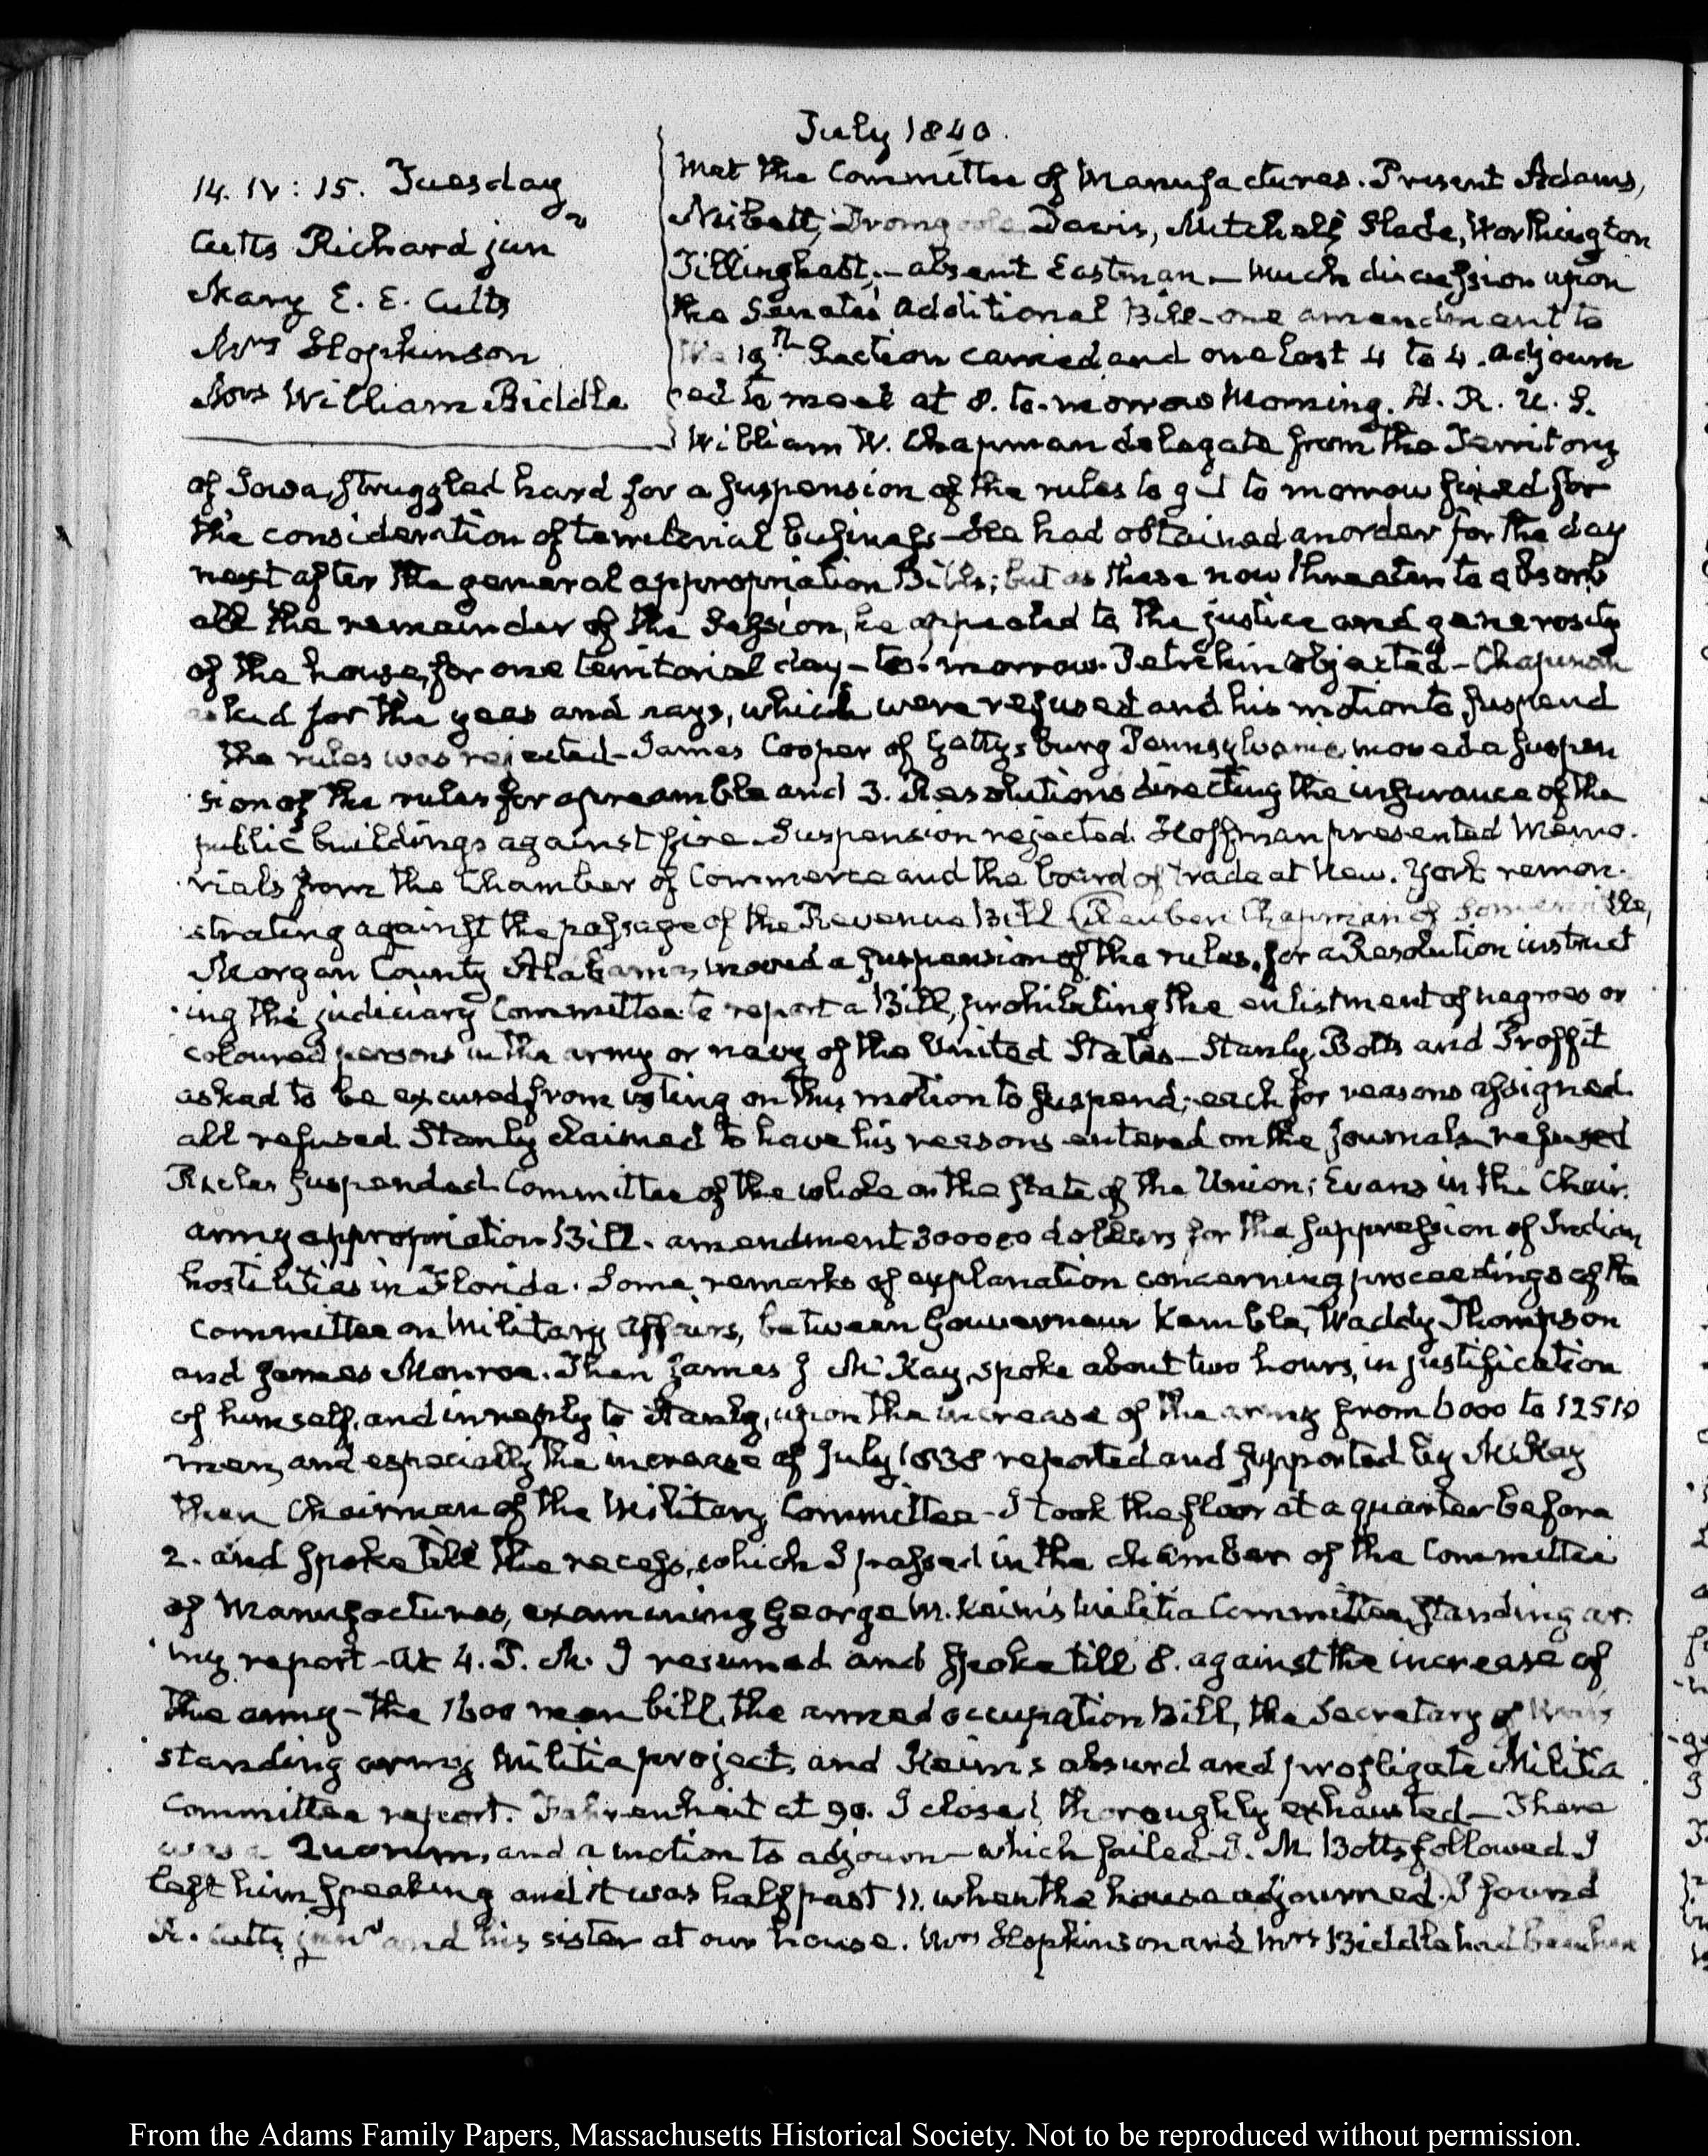 July 1840.
14. IV: 15. Tuesday
Cutts Richard junr
Mary E. E. Cutts
Mrs Hopkinson
Mrs William Biddle
Met the Committee of Manufactures. Present Adams,
Nisbett, Dromgoole, Davis, Mitchell, Slade, Worthington
Tillinghast,—absent Eastman—Much discussion upon
the Senates additional Bill—one amendment to
the 19th Section carried and one lost 4 to 4. adjourn
ed to meet at 8. to-morrow Morning. H. R. U. S.
William W. Chapman delegate from the Territory
of Iowa, struggled hard for a suspension of the rules to get to morrow fixed for
the consideration of territorial business—He had obtained an order for the day
next after the general appropriation Bills; but as these now threaten to absorb
all the remainder of the Session, he appealed to the justice and generosity
of the house, for one territorial day—to-morrow. Petrikin objected—Chapman
asked for the yeas and nays, which were refused and his motion to suspend
the rules was rejected—James Cooper of Gettysburg Pennsylvania moved a suspen
sion of the rules for a preamble and 3. Resolutions directing the insurance of the
public buildings against fire. Suspension rejected. Hoffman presented Memo-
rials from the Chamber of Commerce and the board of trade at New-York remon-
strating against the passage of the Revenue Bill (Reuben Chapman of Somerville,
Morgan County Alabama, moved a suspension of the rules, for a Resolution instruct
ing the judiciary Committee to report a Bill, prohibiting the enlistment of negroes or
coloured persons in the army or navy of the United States—Stanly, Botts and Proffit
asked to be excused from voting on this motion to suspend; each for reasons assigned
all refused Stanly claimed to have his reasons entered on the journals—refused
Rules suspended. Committee of the whole on the state of the Union; Evans in the Chair.
army appropriation Bill. amendment 300000 dollars for the suppression of Indian
hostilities in Florida. Some remarks of explanation concerning proceedings of the
Committee on Military Affairs, between Gouverneur Kemble, Waddy Thompson
and James Monroe. Then James J McKay, spoke about two hours, in justification
of himself, and in reply to Stanly, upon the increase of the army from 6000 to 12510
men, and especially the increase of July 1838 reported and supported by McKay
then Chairman of the Military Committee—I took the floor at a quarter before
2. and spoke till the recess, which I passed in the chamber of the Committee
of Manufactures, examining George M. Keim's Militia Committee, standing ar-
my report—At 4. P. M. I resumed and spoke till 8. against the increase of
the army—the 1600 men bill, the armed occupation Bill, the Secretary of Wars
standing army Militia project, and Keim's absurd and profligate Militia
Committee report. Fahrenheit at 90. I closed, thoroughly exhausted—There
was a Quorum, and a motion to adjourn—which failed J. M. Botts followed I
left him speaking and it was half past 11. when the house adjourned. I found
R. Cutts junr and his sister at our house. Mrs Hopkinson and Mrs Biddle had been here
From the Adams Family Papers, Massachusetts Historical Society. Not to be reproduced without permission.